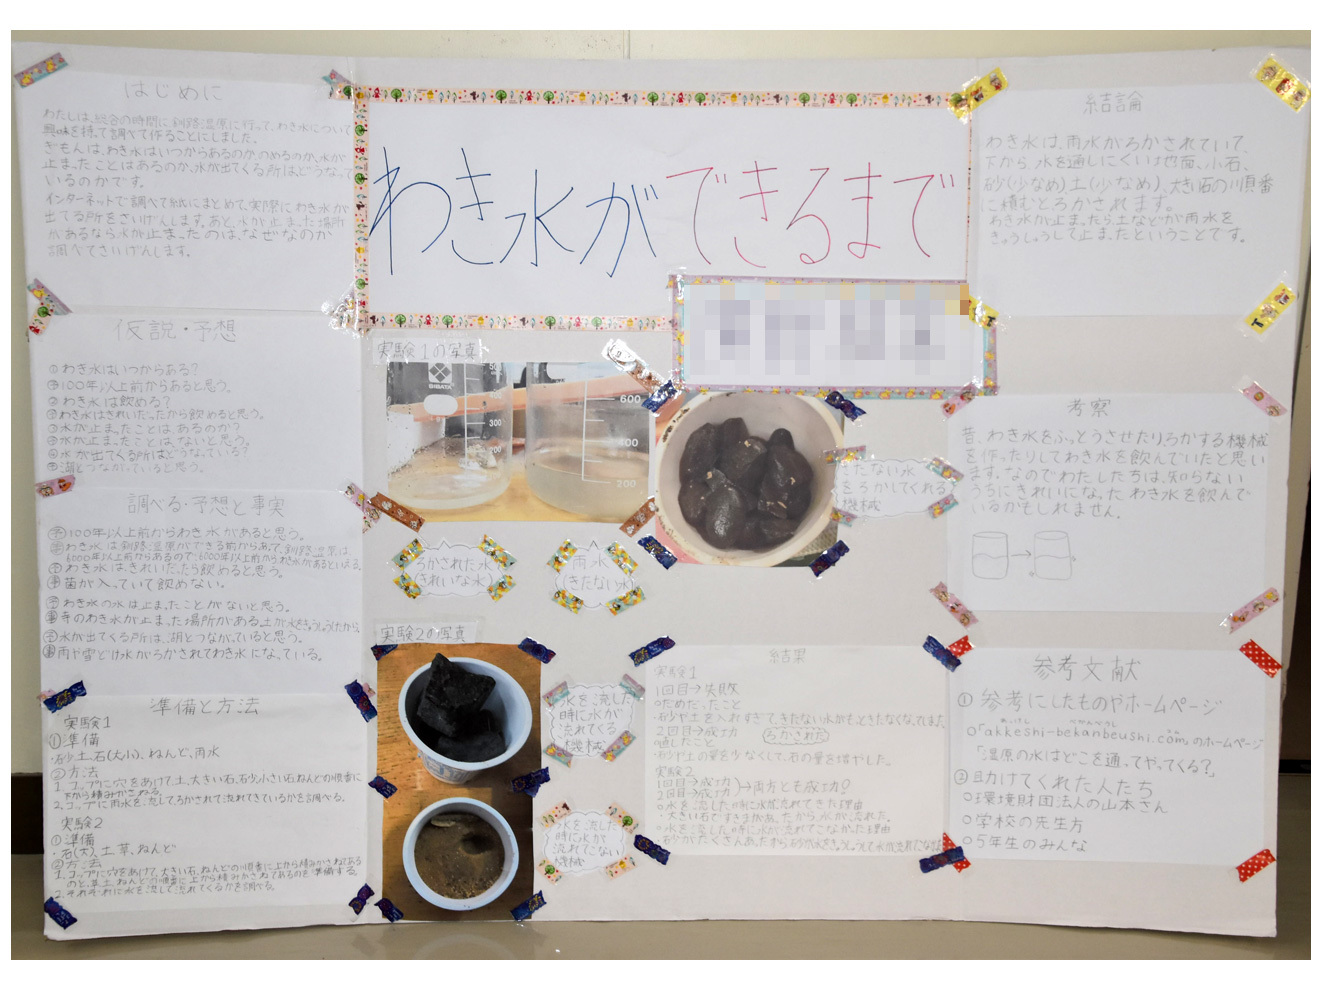 はじめに
わたしは、総合の時間に釧路湿原に行って、わき水について
興味を持て調べて作ることにしました。
ぎもんは、わき水はいつからあるのか、のめるのか、水が
止まったことはあるのか、水が出てくる所は、どうなって
いるのかです。
インターネットで調べて紙にまとめて、実際にわき水が
出てる所をさいげんします。あと、水が止まった場所
があるなら水が止まったのは、なぜなのか
調べてさいげんします。
仮説・予想
①わき水はいつからある?
100年以上前からあると思う。
②わき水は飲める?
わき水はきれいだったから飲めると思う。
③水が止まったことはあるのか?
水が止まったことはないと思う。
④水が出てくる所はどうなっている?
湖とつながっていると思う。
調べる・予想と事実
予100年以上前からわき水があると思う。
事わき水は釧路湿原ができる前からあって、釧路湿原は
6000年以上前からあるので、6000年以上前からわき水があるといえる。
予わき水はきれいだったら飲めると思う。
事菌が入っていて飲めない。
予わき水の水は止まったことがないと思う。
事寺のわき水が止まった場所がある。土が水をきゅうしゅうしたから。
予水が出てくる所は、湖とつながっていると思う。
事雨や雪どけ水がろかされてわき水になっている。
準備と方法
実験1
①準備
・砂、土、石(大小)、ねんど、雨水
②方法
1.コップに穴をあけて、土、大きい石、砂、小さい石、ねんどの順番に
下から積みかさねる。
2.コップに雨水を流してろかされて流れてきているかを調べる。
実験2
①準備
・石(大)、土、草、ねんど
②方法
1.コップに穴をあけて、大きい石、ねんどの順番に上から積みかさねてある
のと、草、土、ねんどの順番に上から積みかさねてあるのを準備する。
2.それぞれに水を流して流れてくるかを調べる。
わき水が できるまで
実験1の写真
SIBATA
300
200
600
400
200
ろかされた水
(きれいな水)
雨水
(きたない水)
きたない水
をろかしてくれる
機械
実験2の写真
水を流した
時に水が
流れてくる
機械
水を流した
時に水が
流れてこない
機械
結果
実験1
1回目→失敗
○だめだったこと
・石砂や土を入れすぎて、きたない水がもっときたなくなってしまた。
2回目→成功 ろかされた
○直したこと
・石砂や土の量を少なくして、石の量を増やした。
実験2
1回目→成功
2回目→成功 →両方とも成功!
○水を流した時に水が流れてきた理由
・大きい石ですきまがあったから水が流れた。
○水を流した時に水が流れてこなかった理由
結論
わき水は、雨水がろかされていて、
下から、水を通しにくい地面、小石、
砂(少なめ)、土(少なめ)、大きい石の順番
に積むとろかされます。
わき水が止まったら土などが雨水を
きゅうしゅうして止まったということです。
考察
昔、わき水をふっとうさせたりろかする機械
を作ったりしてわき水を飲んでいたと思い
ます。なのでわたしたちは、知らない
うちにきれいになったわき水を飲んで
いるかもしれません。
参考文献
①参考にしたものやホームページ
あっけし べかんべうし
○「akkeshi-bekanbeushi.com」のホームページ
「湿原の水はどこを通ってやってくる?」
②助けてくれた人たち
○環境財団法人の山本さん
○学校の先生方
○5年生のみんな